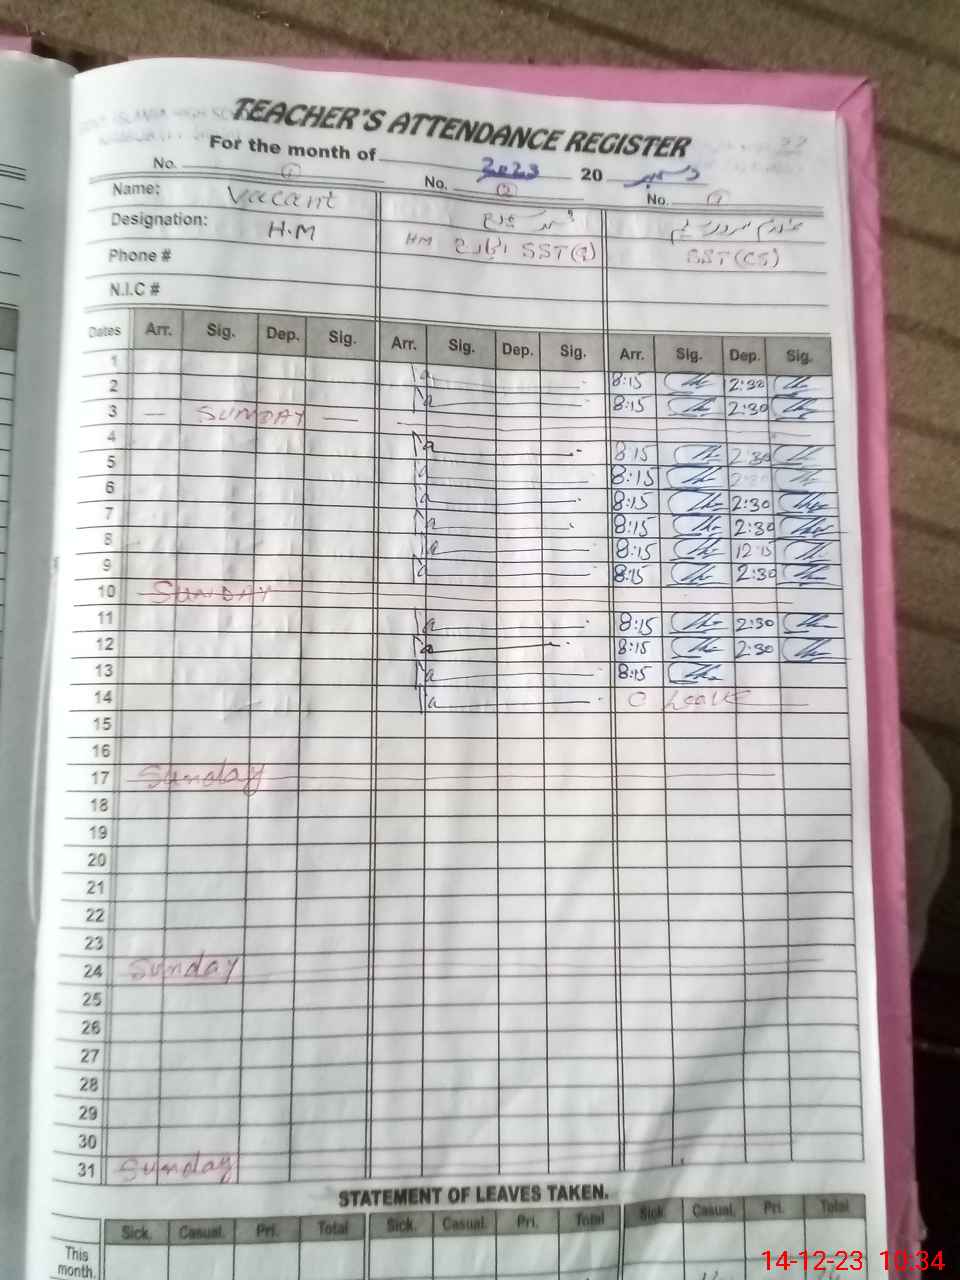 TEACHER'S ATTENDANCE REGISTER
For the month of 2023 20 دسمبر
No. 1 No. 2 No.
Name: Vacant
Designation: H.M HM انچارج SST(G) SST(CS)
Phone #
N.I.C #
Dates Arr. Sig. Dep. Sig. Arr. Sig. Dep. Sig. Arr. Sig. Dep. Sig.
1 a 8:15 2:30
2 a 8:15 2:30
3 — SUNDAY —
4 a 8:15 2:30
5 a 8:15 2:30
6 a 8:15 2:30
7 a 8:15 2:30
8 a 8:15 12:15
9 a 8:15 2:30
10 SUNDAY
11 a 8:15 2:30
12 a 8:15 2:30
13 a 8:15
14 a Leave
15
16
17 Sunday
18
19
20
21
22
23
24 Sunday
25
26
27
28
29
30
31 Sunday
STATEMENT OF LEAVES TAKEN.
Sick. Casual. Pri. Total Sick. Casual. Pri. Total Sick. Casual. Pri. Total
This
month.
14-12-23 10:34